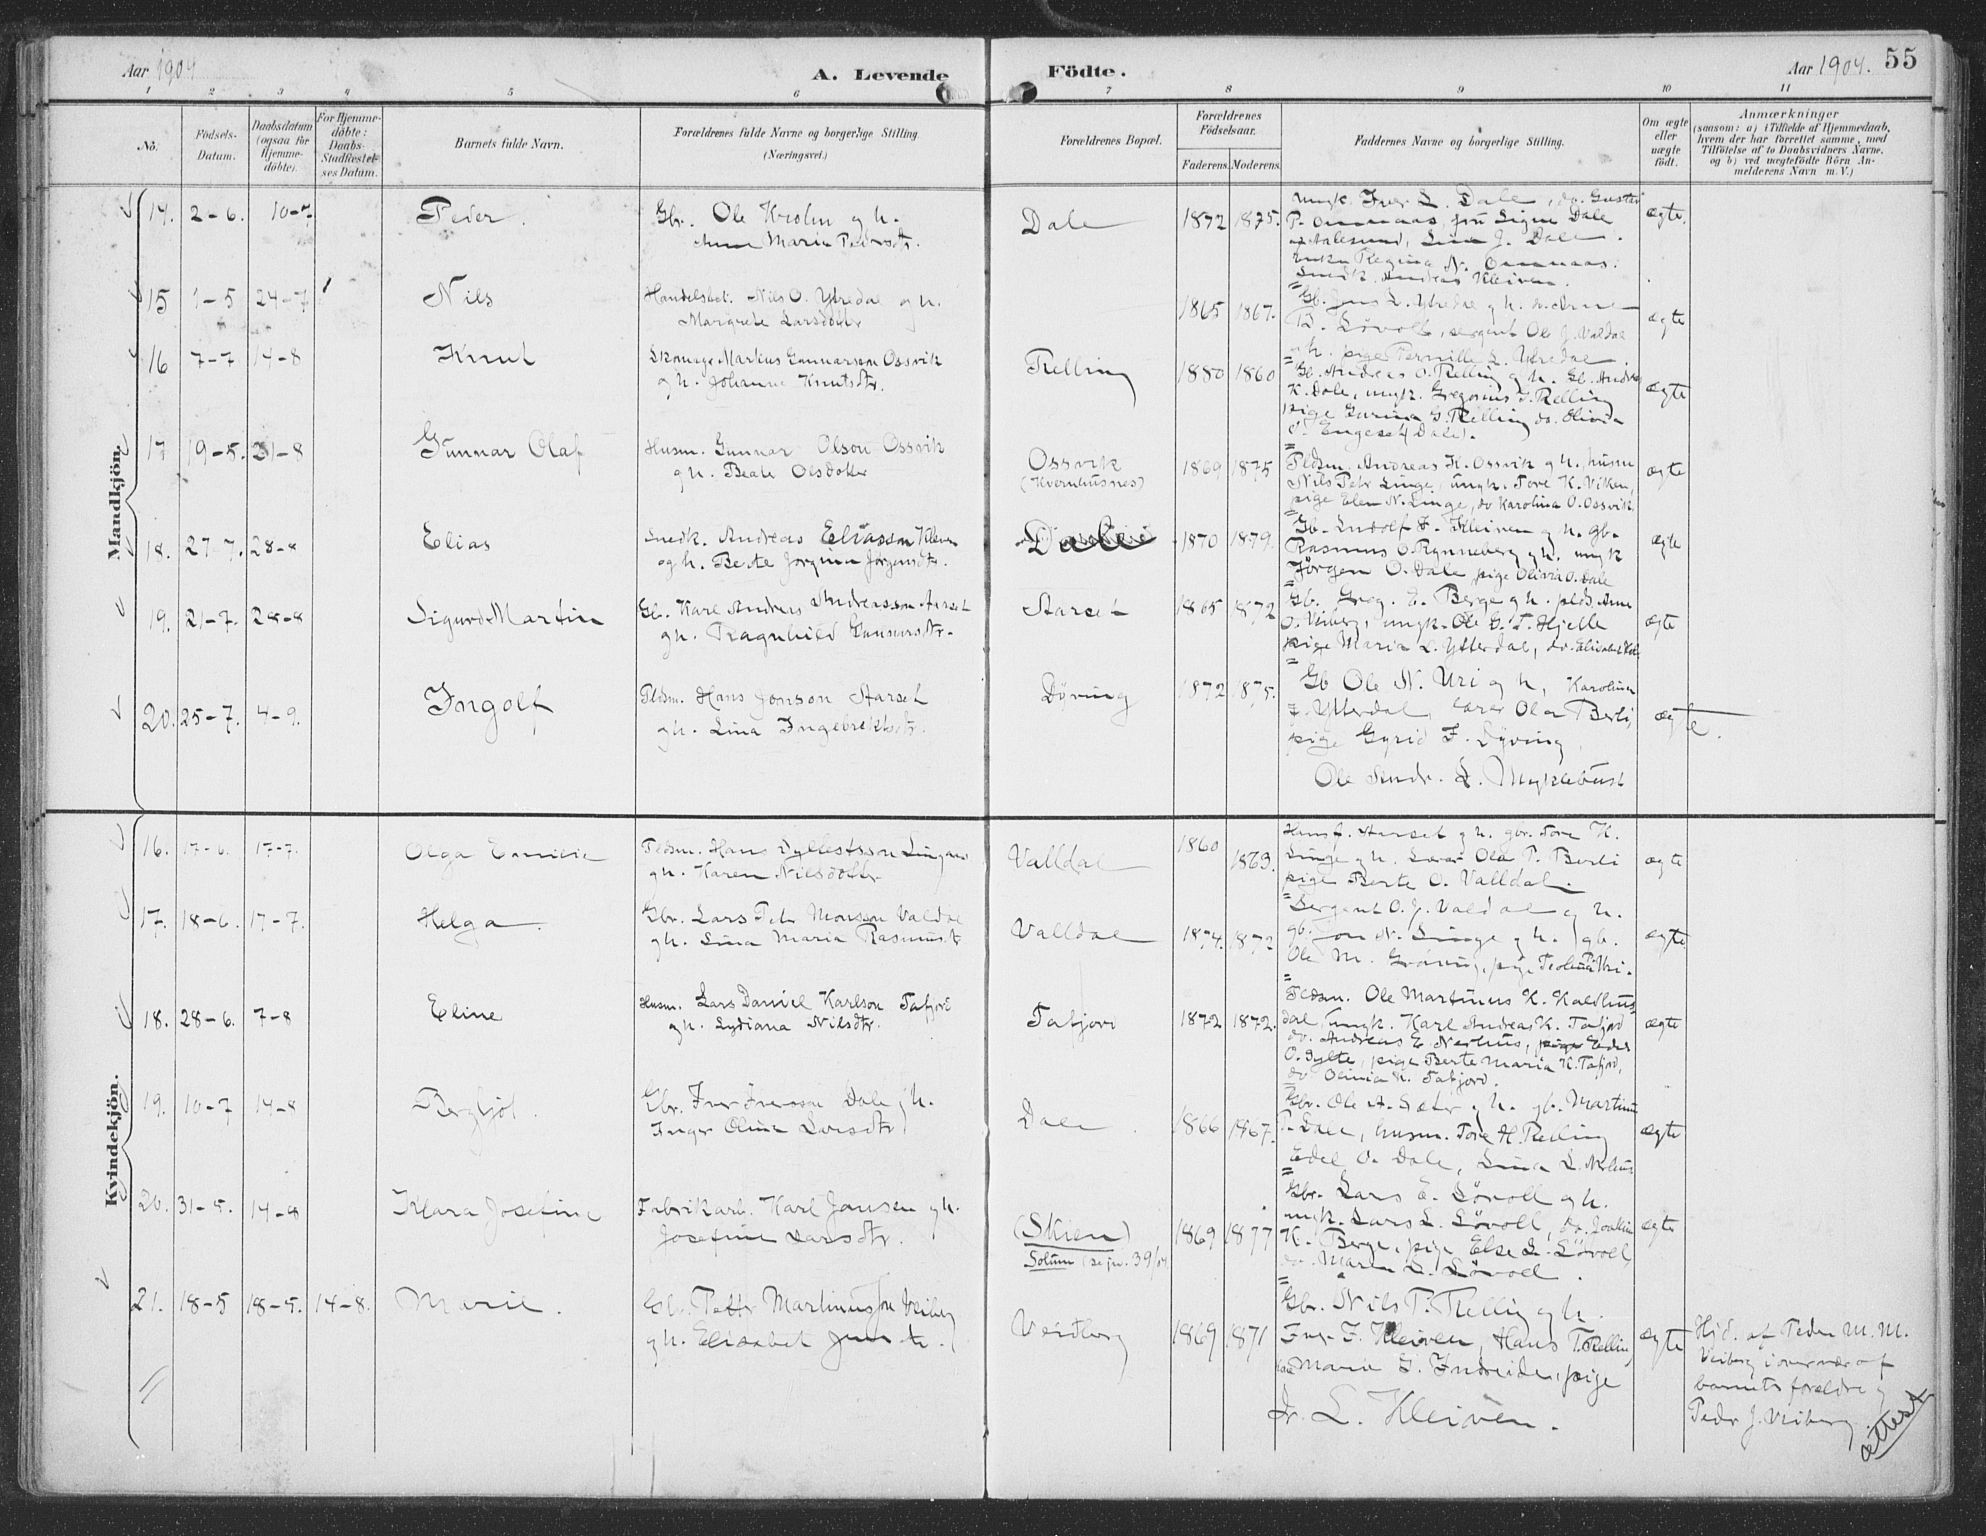 Aar 1904
A. Levende
Födte.
Aar 1904. 55
1 2 3 4 5 6 7 8 9 10 11
No.
Födsels-
Datum.
Daabsdatum
(ogsaa for
Hjemme-
döbte).
For Hjemme-
döbte:
Daabs-
Stadfæstel-
ses Datum.
Barnets fulde Navn.
Forældrenes fulde Navne og borgerlige Stilling.
(Næringsvei.)
Forældrenes Bopæl.
Forældrenes
Födselsaar.
Faderens. Moderens.
Faddernes Navne og borgerlige Stilling.
Om ægte
eller
uægte
födt.
Anmærkninger
(saasom: a) i Tilfælde af Hjemmedaab,
hvem der har forrettet samme, med
Tilföielse af to Daabsvidners Navne,
og b) ved uægtefödte Börn An-
melderens Navn m. V.)
Mandkjön.
14. 2-6. 10-7 Peder.
Gbr. Ole Krohn og h.
Anne Marie Pedersdtr.
Dale 1872 1875.
ungk. Iver L. Dale, do. Gustav
P. Omenaas, frü Signe Dale
Aalesund, Lina J. Dale.
enke Regina N. Omenaas.
Snedk. Andreas Kleiven.
ægte.
15 1-5 24-7 Nils
Handelsbet. Nils O. Ytredal og h.
Margrete Larsdotter
1865 1867.
Gb. Jens L. Ytredal og h. Arne
B. Lövoll, sergent Ole J. Valdal
og h. pige Pernille L. Ytredal.
ægte
16 7-7 14-8 Knut
Skomag. Martius Gunnarson Ossvik
og h. Johanne Knutsdtr.
Relling 1880 1860
Gb. Andreas O. Relling og h. Gb. Andrea
K. Dale, ungk. Gregorius J. Relling
pige Gurina G. Relling do. Olivia
Engeset (Dale).
ægte
17 19-5. 21-8 Gunnar Olaf
Husm. Gunnar Olson Ossvik
og h. Beate Olsdotter
Ossvik
(Kvernhusnes)
1869 1875
Pldsm. Andreas K. Ossvik og h., husm
Nils Petr Linge, ungk. Tore K. Viken,
pige Elen N. Linge, do Karolina O. Ossvik.
ægte
18. 27-7. 28-8 Elias
Snedk. Andreas Eliasson Kleven
og h. Berte Jorgina Jörgensdtr.
Dale 1870 1879.
Gb. Ludolf I. Kleiven og h. gb.
Rasmus O. Rynneberg og h. ungk
Jörgen O. Dale pige Olivia O. Dale
ægte
19. 21-7. 28-8 Sigurd Martin
Gb. Karl Andreas Andreasson Aarset
og h. Ragnhild Gunnarsdtr.
Aarset 1865 1872
Gb. Greg. E. Berge og h. plds. Arne
O. Veiberg, ungk. Ole G. T. Hjelle
pige Maria L. Ytterdal, do. Elisabet
ægte
20. 25-7. 4-9. Ingolf
Pldsm. Hans Jonson Aarset
og h. Lina Ingebrektsdtr.
Dyving 1872 1875.
Gb Ole N. Uri og h, Karoline
Ytterdal, lærer Ola Berli,
pige Gyrid I. Dyving,
Ole Andr. L. Myklebust
ægte.
Kvindekjön.
16. 17-6. 17-7. Olga Emilie
Pldsm. Hans Syllestsson Lingaas
og h. Karen Nilsdotter
Valldal 1860 1863.
Hans J. Aarset og h. gbr. Tore K.
Linge og h. Lærer Ola P. Berli
pige Berte O. Valldal.
ægte
17. 18-6. 17-7. Helga.
Gbr. Lars Petr Monson Valdal
og h. Lina Maria Rasmusdt
Valldal 1874. 1872
Sergent O. J. Valdal og h.
gb. Jon N. Linge og h. gb.
Ole M. Grönning, pige Teoline P. Uri.
ægte
18. 28-6. 7-8 Eline
Husm. Lars Daniel Karlson Tafjord
og h. Lydiana Nilsdtr.
Tafjord 1872 1872.
Pldsm. Ole Martinus K. Kaldhus-
dal, ungk. Karl Andreas K. Tafjord
do. Andreas E. Nerhus, pige Endes
O. Sylte, pige Berte Maria K. Tafjord,
do Olivia K. Tafjord.
ægte
19. 10-7 14-8 Bergljot.
Gbr. Iver Iversson Dale og h.
Inger Oline Larsdtr
Dale. 1866 1867.
Gbr. Ole A. Sæter og h. gb. Martinus
P. Dale, husm. Tore H. Relling
Edel O. Dale, Lina L. Mrlnus
ægte
20. 31-5. 14-8 Klara Josefine
Fabrikarb. Karl Jansen og h.
Josefine Larsdtr.
(Skien)
Solum (se jn. 39/04.
1869 1877
Gbr. Lars E. Lövoll og h.
ungk. Lars L. Lövoll, do. Joakim
K. Berge, pige Else L. Lövoll,
do. Maren L. Lövoll.
ægte
21. 18-5 18-5. 14-8. Marie.
Gbr. Petter Martinussøn Veiberg
og h. Elisabet Jensdt.
Veidberg 1869 1871
Gbr. Nils P. Relling og h.
I. Kleiven, Hans T. Relling
Maria G. Indreide, pige
L. Kleiven.
ægte
Hjd. af Peder M. M.
Veiberg i overvær af
barnets forældre og
Peder J. Veiberg.
attest